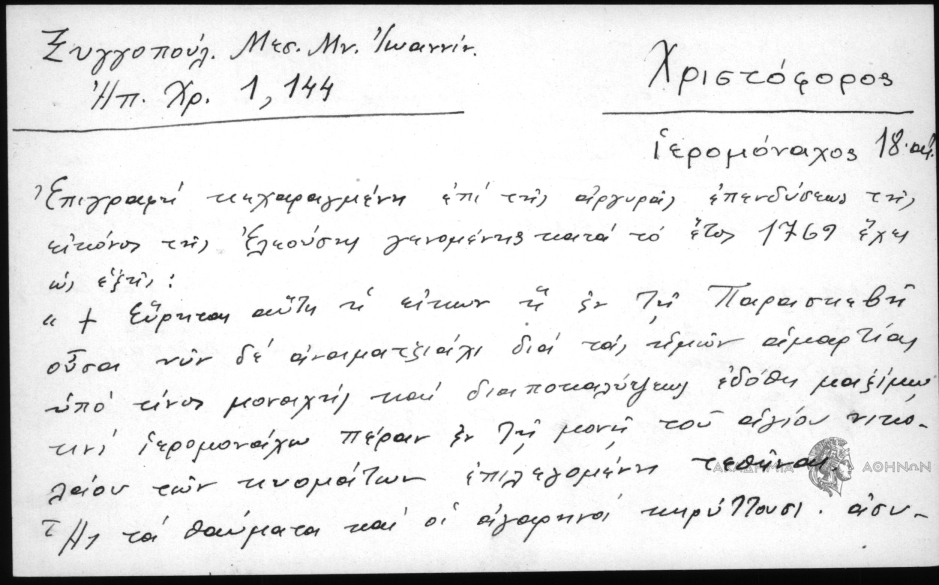 Ξυγγοπούλ. Μεσ. Μν. Ἰωαννίν.
Ἠπ. Χρ. 1, 144
Χριστόφορος
ἱερομόναχος 18. αἰ.
Ἐπιγραφή κεχαραγμένη ἐπί τῆς ἀργυρᾶς ἐπενδύσεως τῆς
εἰκόνος τῆς Ἐλεούσης γενομένης κατά τό ἔτος 1769 ἔχει
ὡς ἑξῆς:
" + Εὕρηται αὕτη ἡ εἰκων ἡ ἐν τῇ Παρασκεβῇ
οὖσα νῦν δέ διά τάς ἡμῶν ἁμαρτίας
ὑπό τινος μοναχῆς καί διαποκαλύψεως ἐδόθη μαξίμω
τινί ἱερομονάχω πέραν ἐν τῇ μονῇ τοῦ ἁγίου νικο-
λαίου τῶν ἐπιλεγομένη τεθῆναι.
Ἧς τά θαύματα καί οἱ ἀγαρηνοί κηρύττουσι. ἀσυ-
ΑΚΑΔΗΜΙΑ ΑΘΗΝΩΝ